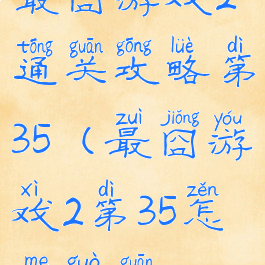 最囧游戏2
tōng guān gōng lüè dì
通关攻略第
zuì jiǒng yóu
35（最囧游
xì dì zěn
戏2第35怎
me guò guān